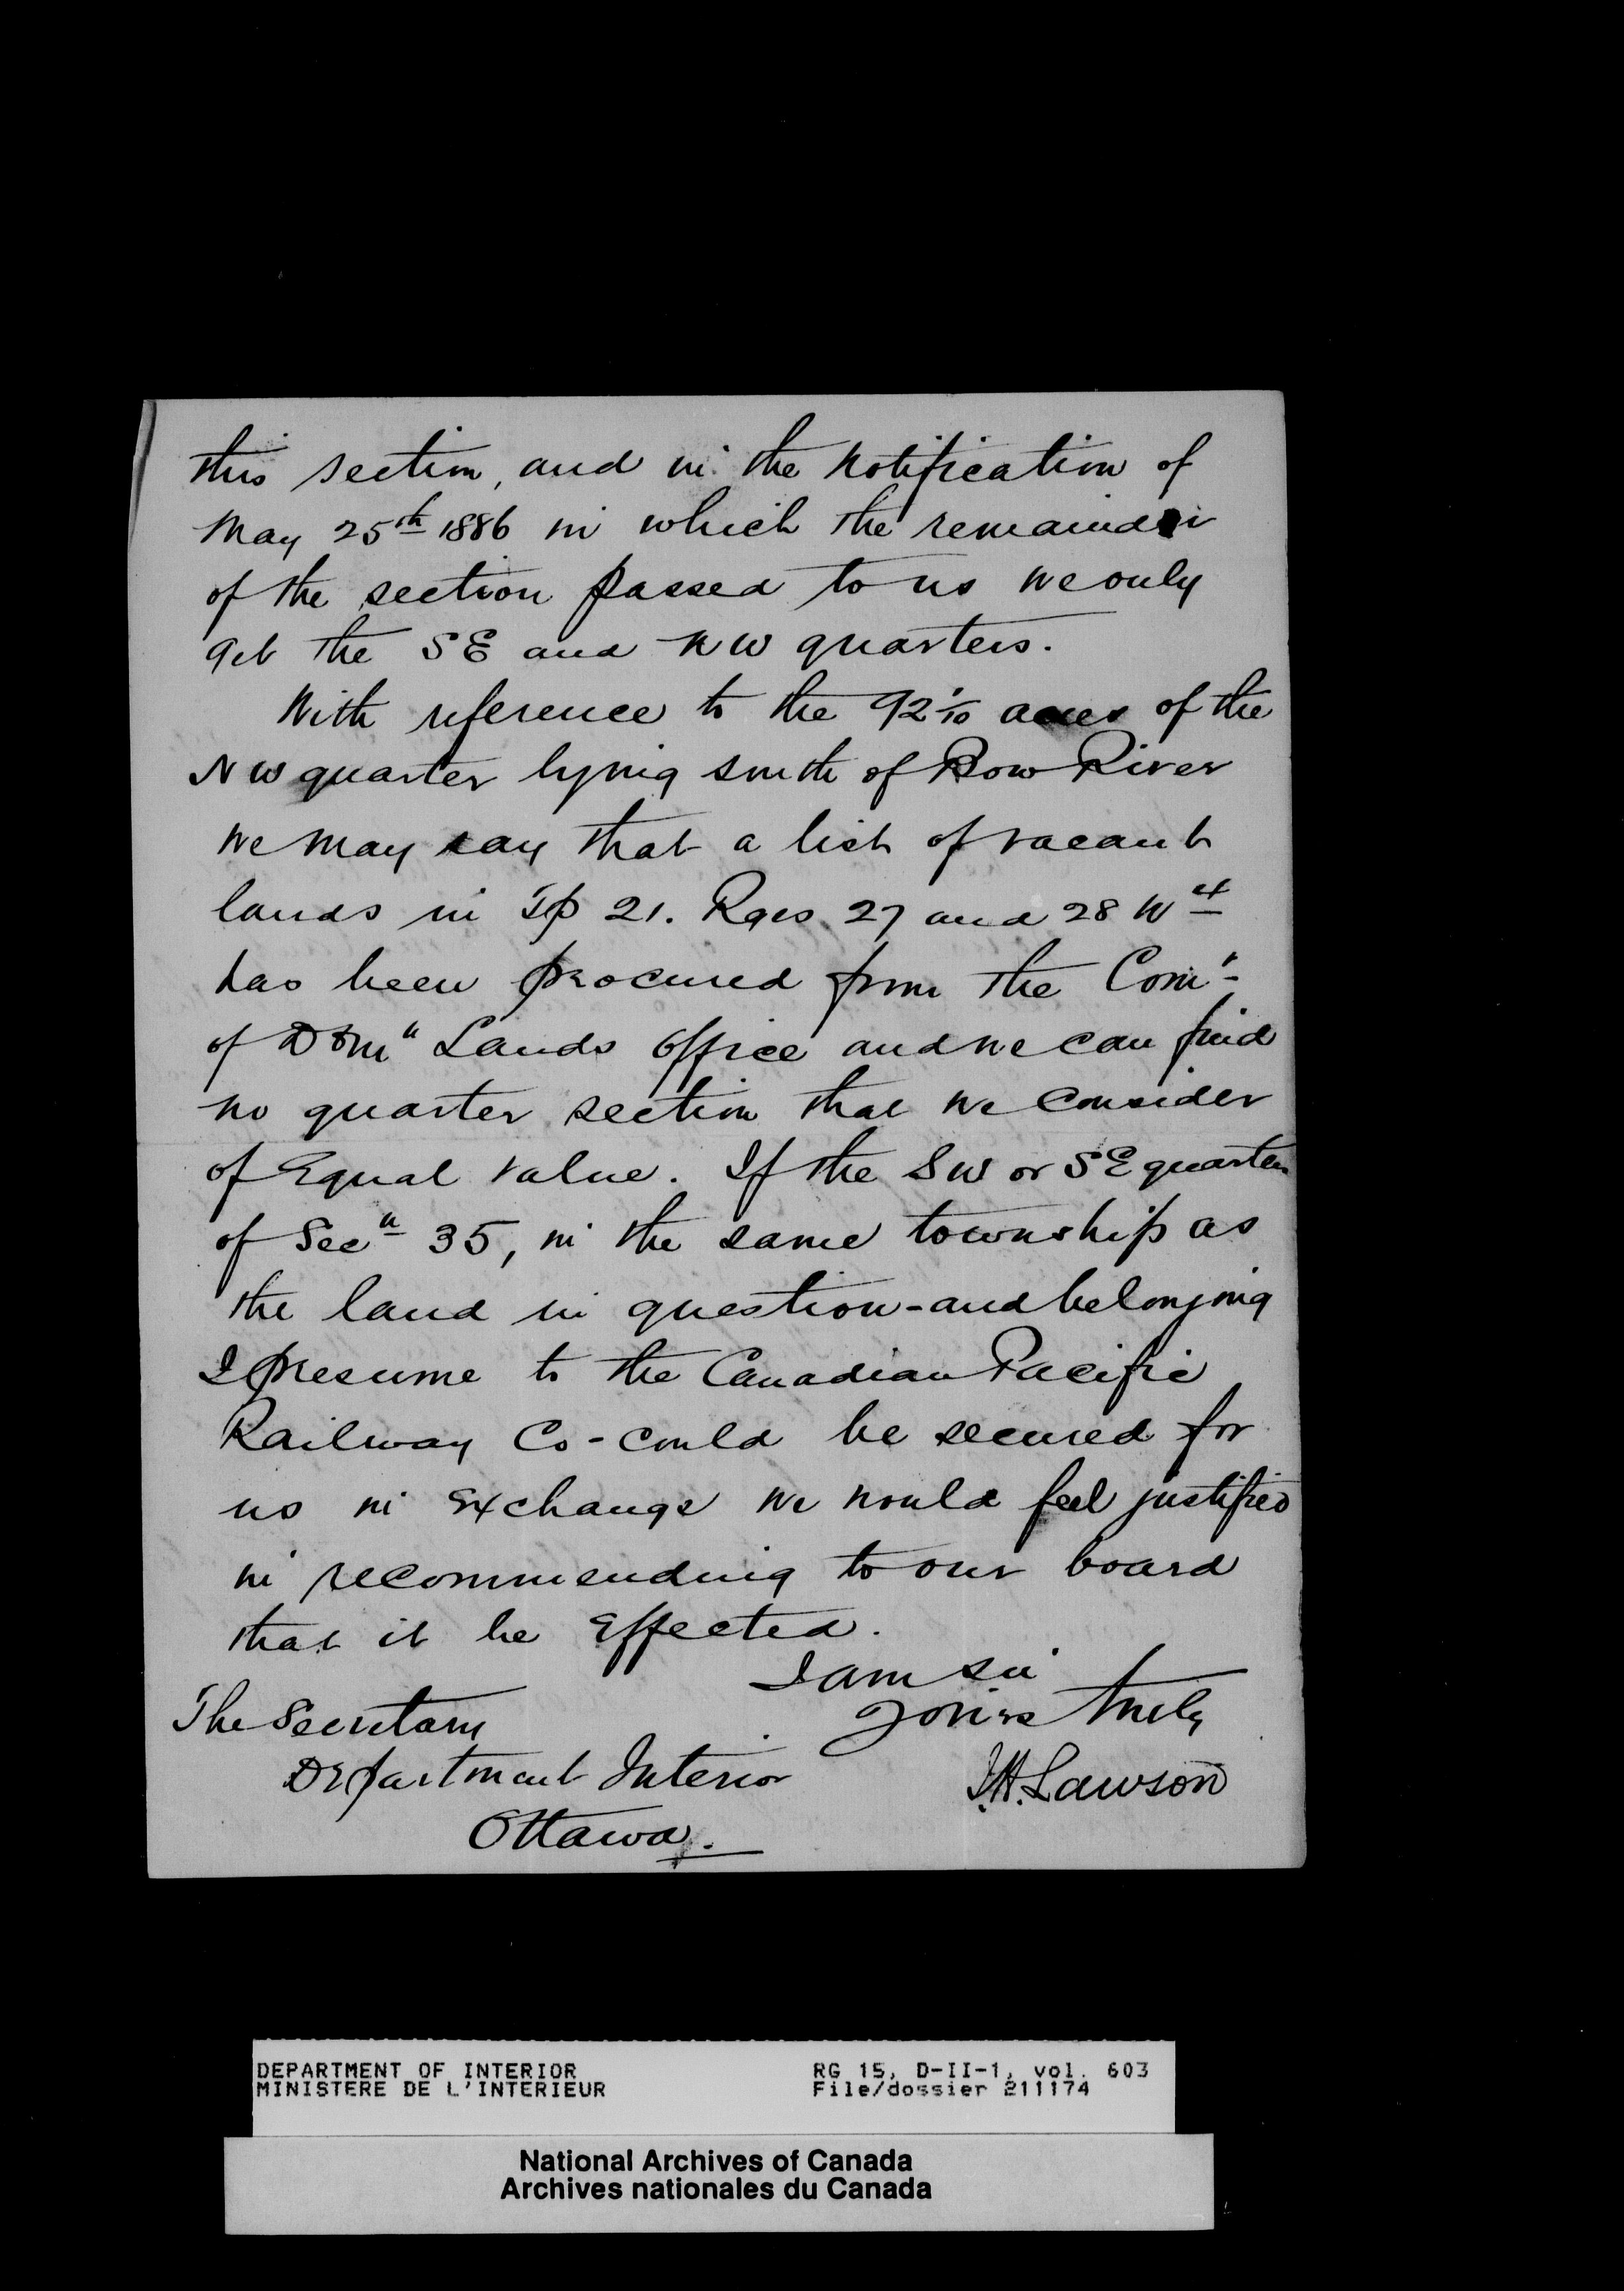 this section, and in the notification of
May 25th 1886 in which the remainder
of the section passed to us we only
get the SE and NW quarters.
With reference to the 92 1/10 acres of the
NW quarter lying south of Bow River
we may say that a list of vacant
lands in Tp 21. Rges 27 and 28 W 4
has been procured from the Comr
of Domn Lands Office and we can find
no quarter section that we consider
of Equal value. If the SW or SE quarter
of Secn 35, in the same township as
the land in question - and belonging
I presume to the Canadian Pacific
Railway Co - could be secured for
us in Exchange we would feel justified
in recommending to our board
that it be Effected.
I am Sir
Yours truly
The Secretary
Department Interior
J.H. Lawson
Ottawa.
DEPARTMENT OF INTERIOR RG 15, D-II-1, vol. 603
MINISTERE DE L'INTERIEUR File/dossier 211174
National Archives of Canada
Archives nationales du Canada